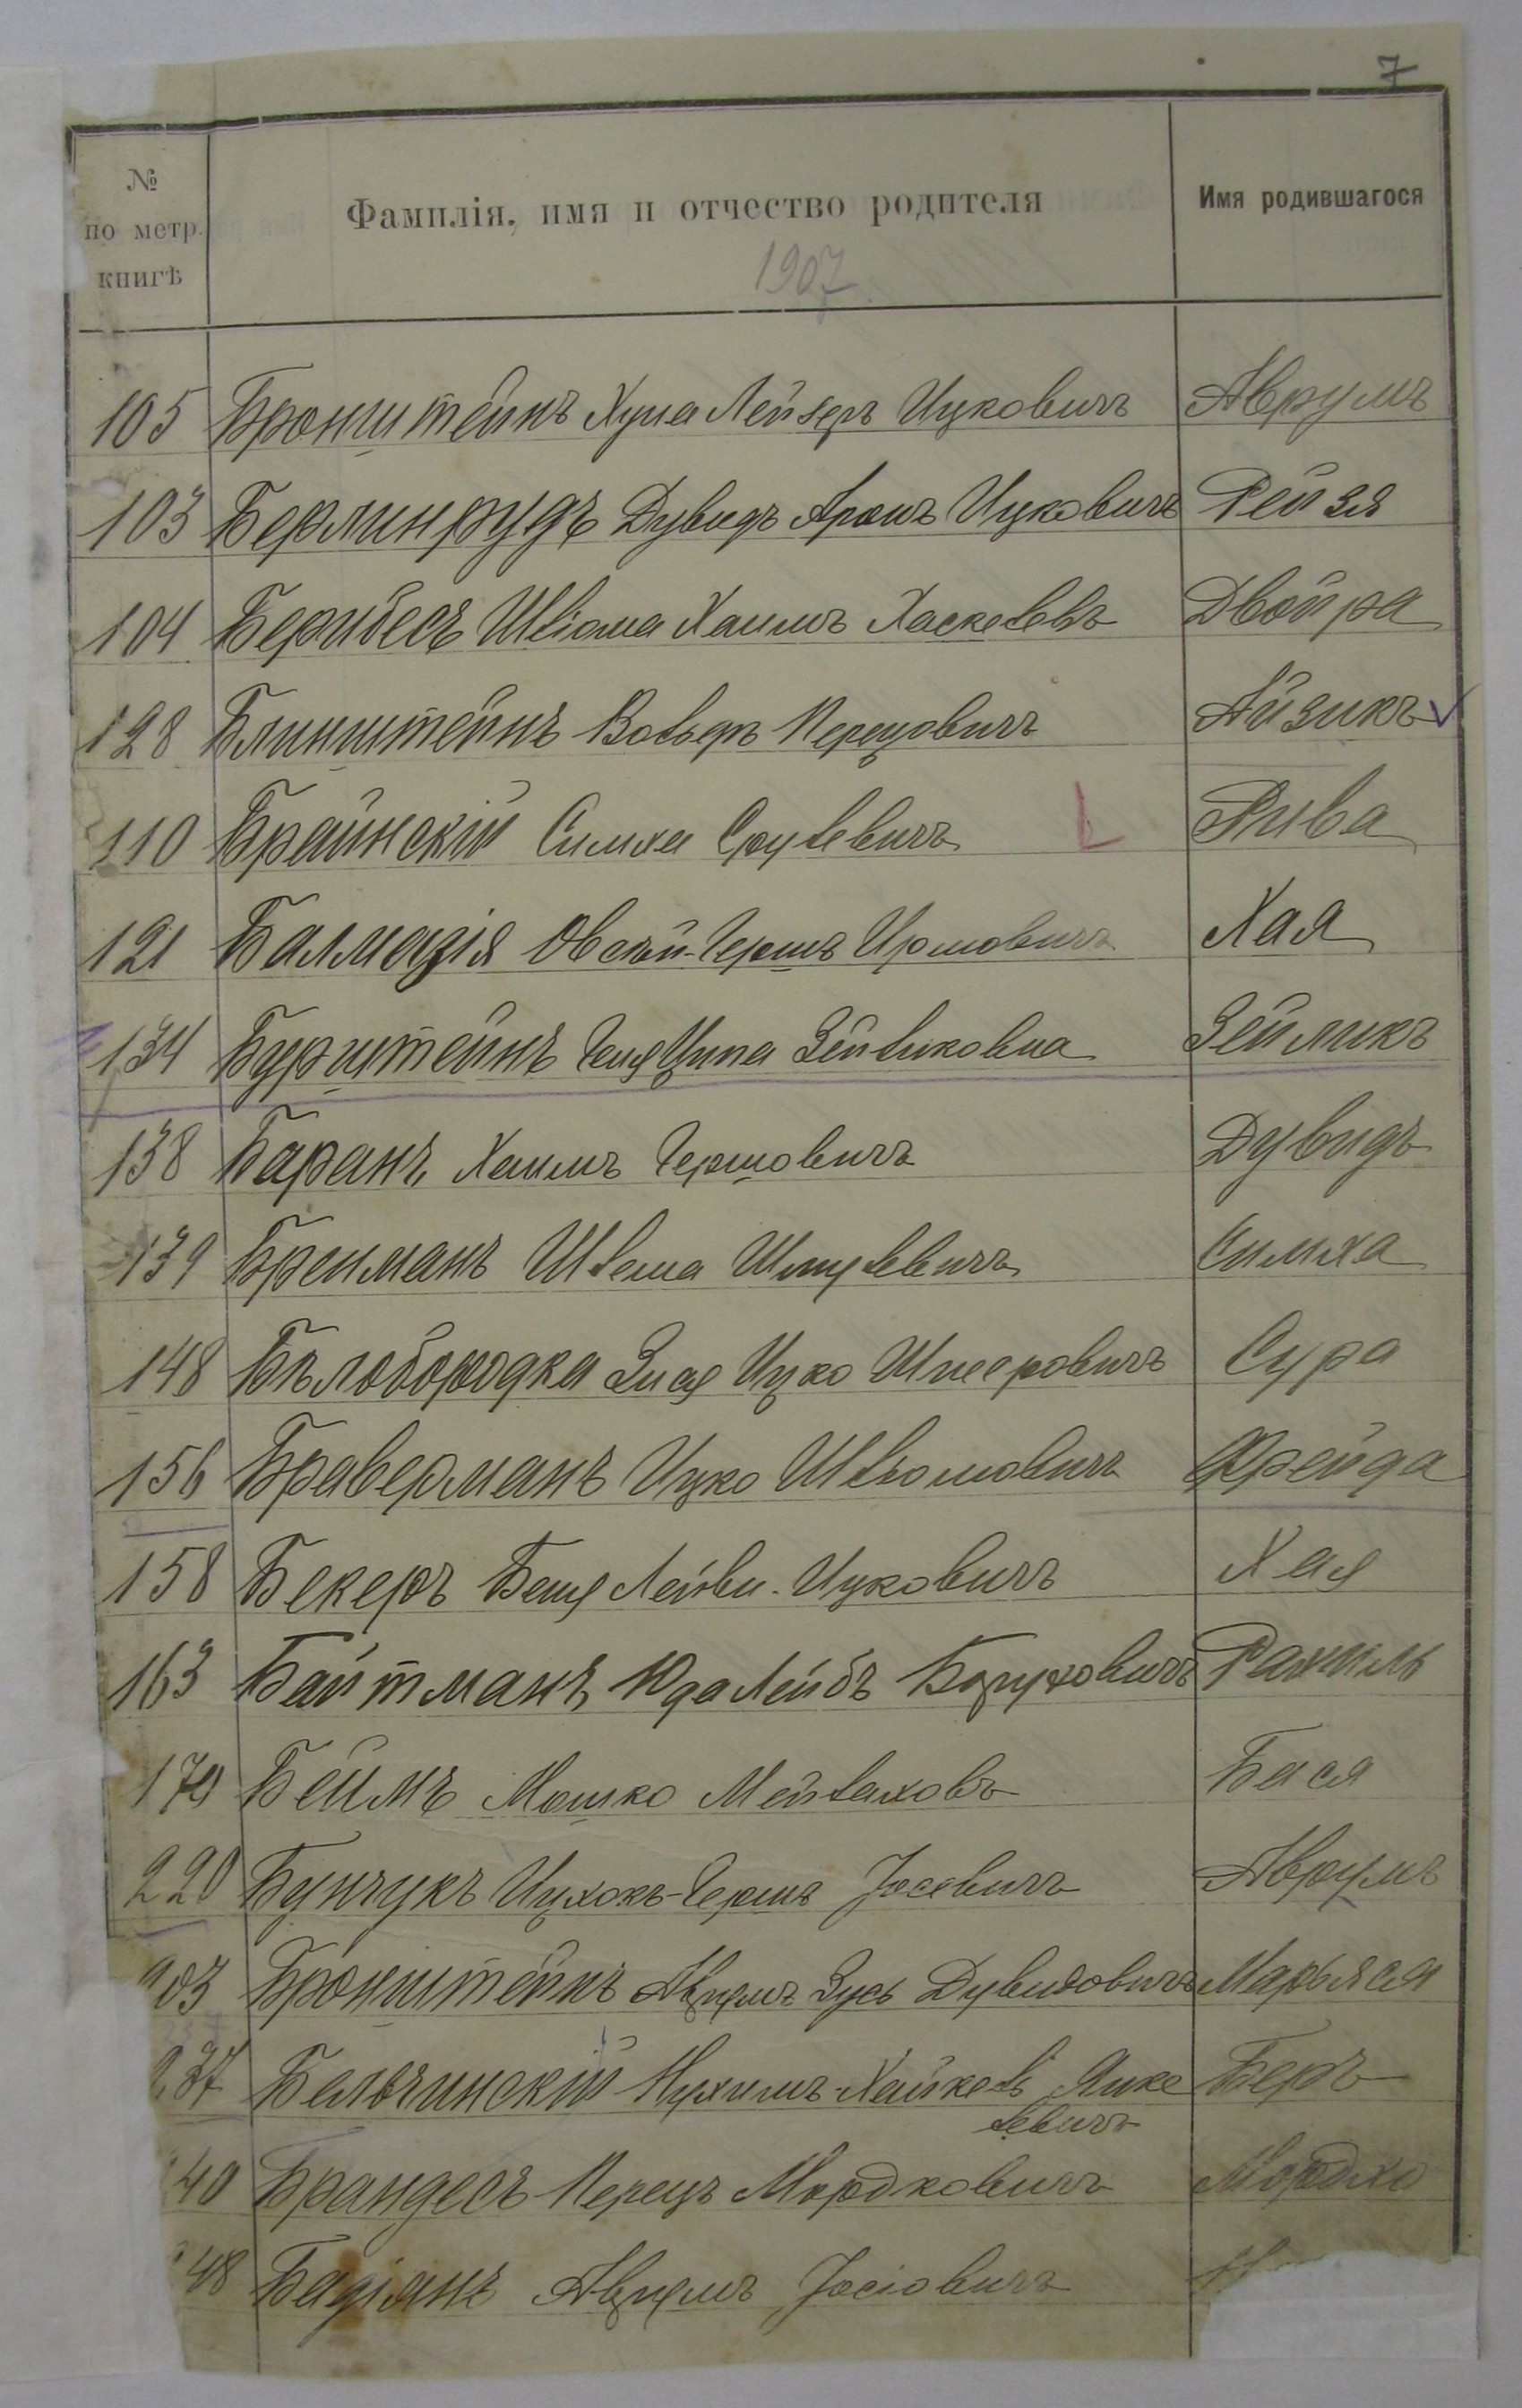 7
№
по метр.
книгѣ
Фамилія, имя и отчество родителя
1907
Имя родившагося
105 Бронштейнъ Хуна Лейзеръ Ицковичъ Аврумъ
103 Берлинрудъ Дувидъ Аронъ Ицковичъ Рейзя
104 Шліома Хаимъ Хаскелевъ Двойра
128 Блинштейнъ Вольфъ Перецовичъ Айзикъ
110 Браинскій Симха Срулевичъ Рива
121 Балмазія Овсей-Гершъ Ирмовичъ Хая
134 Бурштейнъ Ципа Зейликовна Зейликъ
138 Баранъ Хаимъ Гершовичъ Дувидъ
139 Брейманъ Шлема Шмулевичъ Симха
148 Бѣлобородка Зися Ицко Шнееровичъ Сура
156 Браверманъ Ицко Шліомовичъ Фрейда
158 Бекеръ Лейви-Ицковичъ Хая
163 Байтманъ Юда Лейбъ Боруховичъ Рахиль
Беймъ Мошко Мейлаховъ Бася
220 Бунчукъ Ицхокъ-Гершъ Јосевичъ Аврумъ
203 Бронштейнъ Аврумъ Зусь Дувидовичъ Марьяся
237 Бельчинскій Нухимъ-Хайкель Янке Беръ
левичъ
40 Брандесъ Перецъ Мордковичъ Мордко
48 Бадіянъ Аврумъ Јосіовичъ